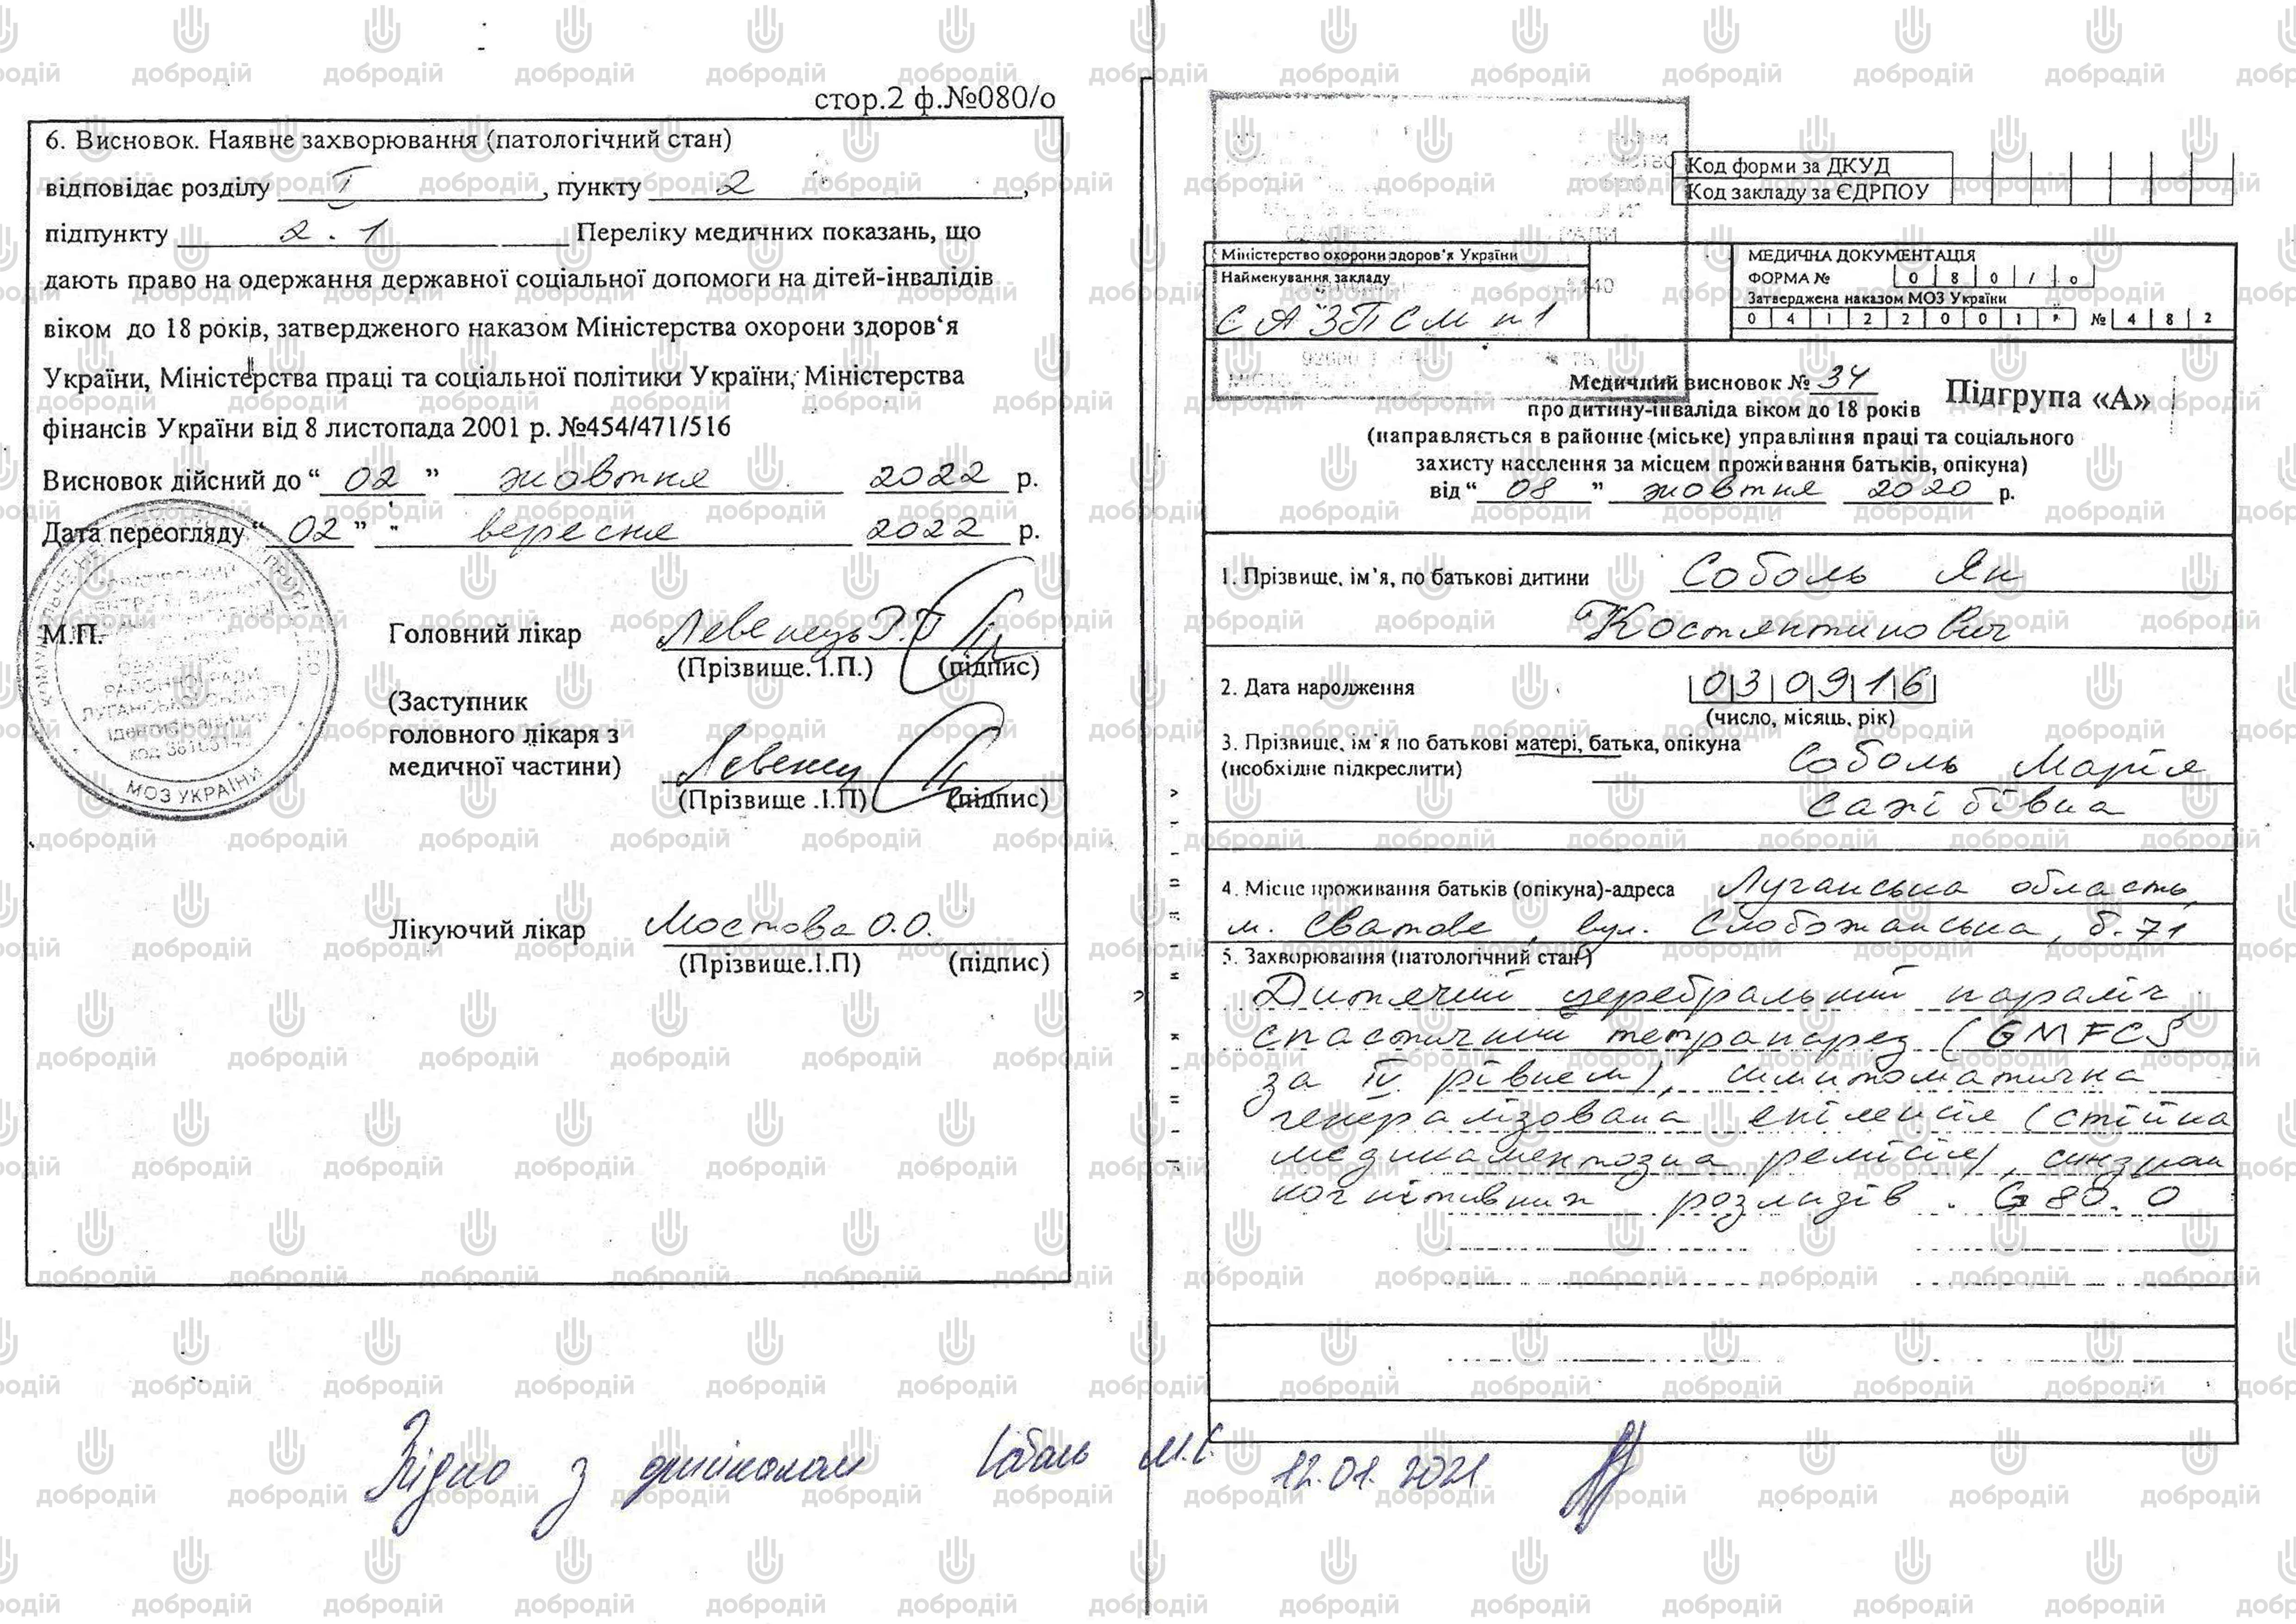 стор.2 ф.№080/о
6. Висновок. Наявне захворювання (патологічний стан)
відповідає розділу I , пункту 2 ,
підпункту 2.1 Переліку медичних показань, що
дають право на одержання державної соціальної допомоги на дітей-інвалідів
віком до 18 років, затвердженого наказом Міністерства охорони здоров‘я
України, Міністерства праці та соціальної політики України, Міністерства
фінансів України від 8 листопада 2001 р. №454/471/516
Висновок дійсний до “ 02 ” жовтня 2022 р.
Дата переогляду “ 02 ” вересня 2022 р.
М.П.
Головний лікар Левенець Р.П
(Прізвище. І.П.) (підпис)
(Заступник
головного лікаря з
медичної частини) Левенец
(Прізвище .І.П) (підпис)
РАЙОННОЇ РАДИ
ЛУГАНСЬКОЇ ОБЛАСТІ
МОЗ УКРАЇНИ
Лікуючий лікар Мостова О.О.
(Прізвище.І.П) (підпис)
Код форми за ДКУД
Код закладу за ЄДРПОУ
Міністерство охорони здоров'я України
Найменування закладу
САЗПСМ №1
МЕДИЧНА ДОКУМЕНТАЦІЯ
ФОРМА № 0 8 0 / о
Затверджена наказом МОЗ України
0 4 1 2 2 0 0 1 р. № 4 8 2
Медичний висновок № 34
Підгрупа «А»
про дитину-інваліда віком до 18 років
(направляється в районне (міське) управління праці та соціального
захисту населення за місцем проживання батьків, опікуна)
від “ 08 ” жовтня 2020 р.
1. Прізвище, ім’я, по батькові дитини Соболь Ян
Костянтинович
2. Дата народження 0 3 0 9 1 6
(число, місяць, рік)
3. Прізвище, ім’я по батькові матері, батька, опікуна
(необхідне підкреслити) Соболь Марія
Сажібівна
4. Місце проживання батьків (опікуна)-адреса Луганська область,
м. Сватове, вул. Слобожанська, б.71
5. Захворювання (патологічний стан)
Дитячий церебральний параліч,
спастичний тетрапарез (GMFCS
за IV рівнем), симптоматична
генералізована епілепсія (стійка
медикаментозна ремісія), синдром
когнітивних розладів. G 80.0
Згідно з оригіналом Соболь М.С. 12.01.2021
добродій